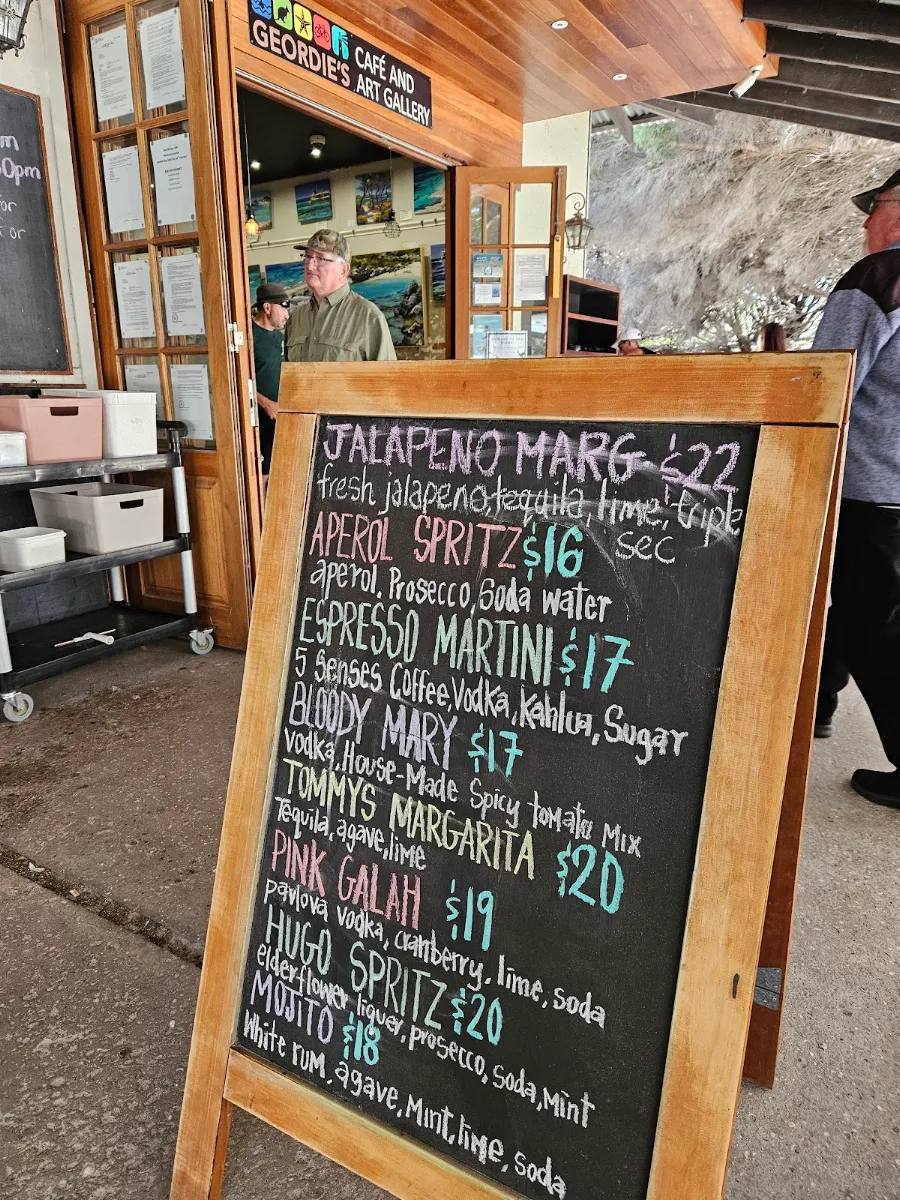 GEORDIE'S CAFÉ AND
ART GALLERY
0pm
or
or
JALAPENO MARG $22
fresh jalapeno, tequila, lime, triple
sec
APEROL SPRITZ $16
aperol, Prosecco, Soda water
ESPRESSO MARTINI $17
5 Senses Coffee, Vodka, Kahlua, Sugar
BLOODY MARY $17
vodka, House-Made Spicy tomato Mix
TOMMYS MARGARITA $20
Tequila, agave, lime
PINK GALAH $19
pavlova vodka, cranberry, lime, soda
HUGO SPRITZ $20
elderflower liquer, prosecco, soda, Mint
MOJITO $18
White rum, agave, Mint, lime, soda